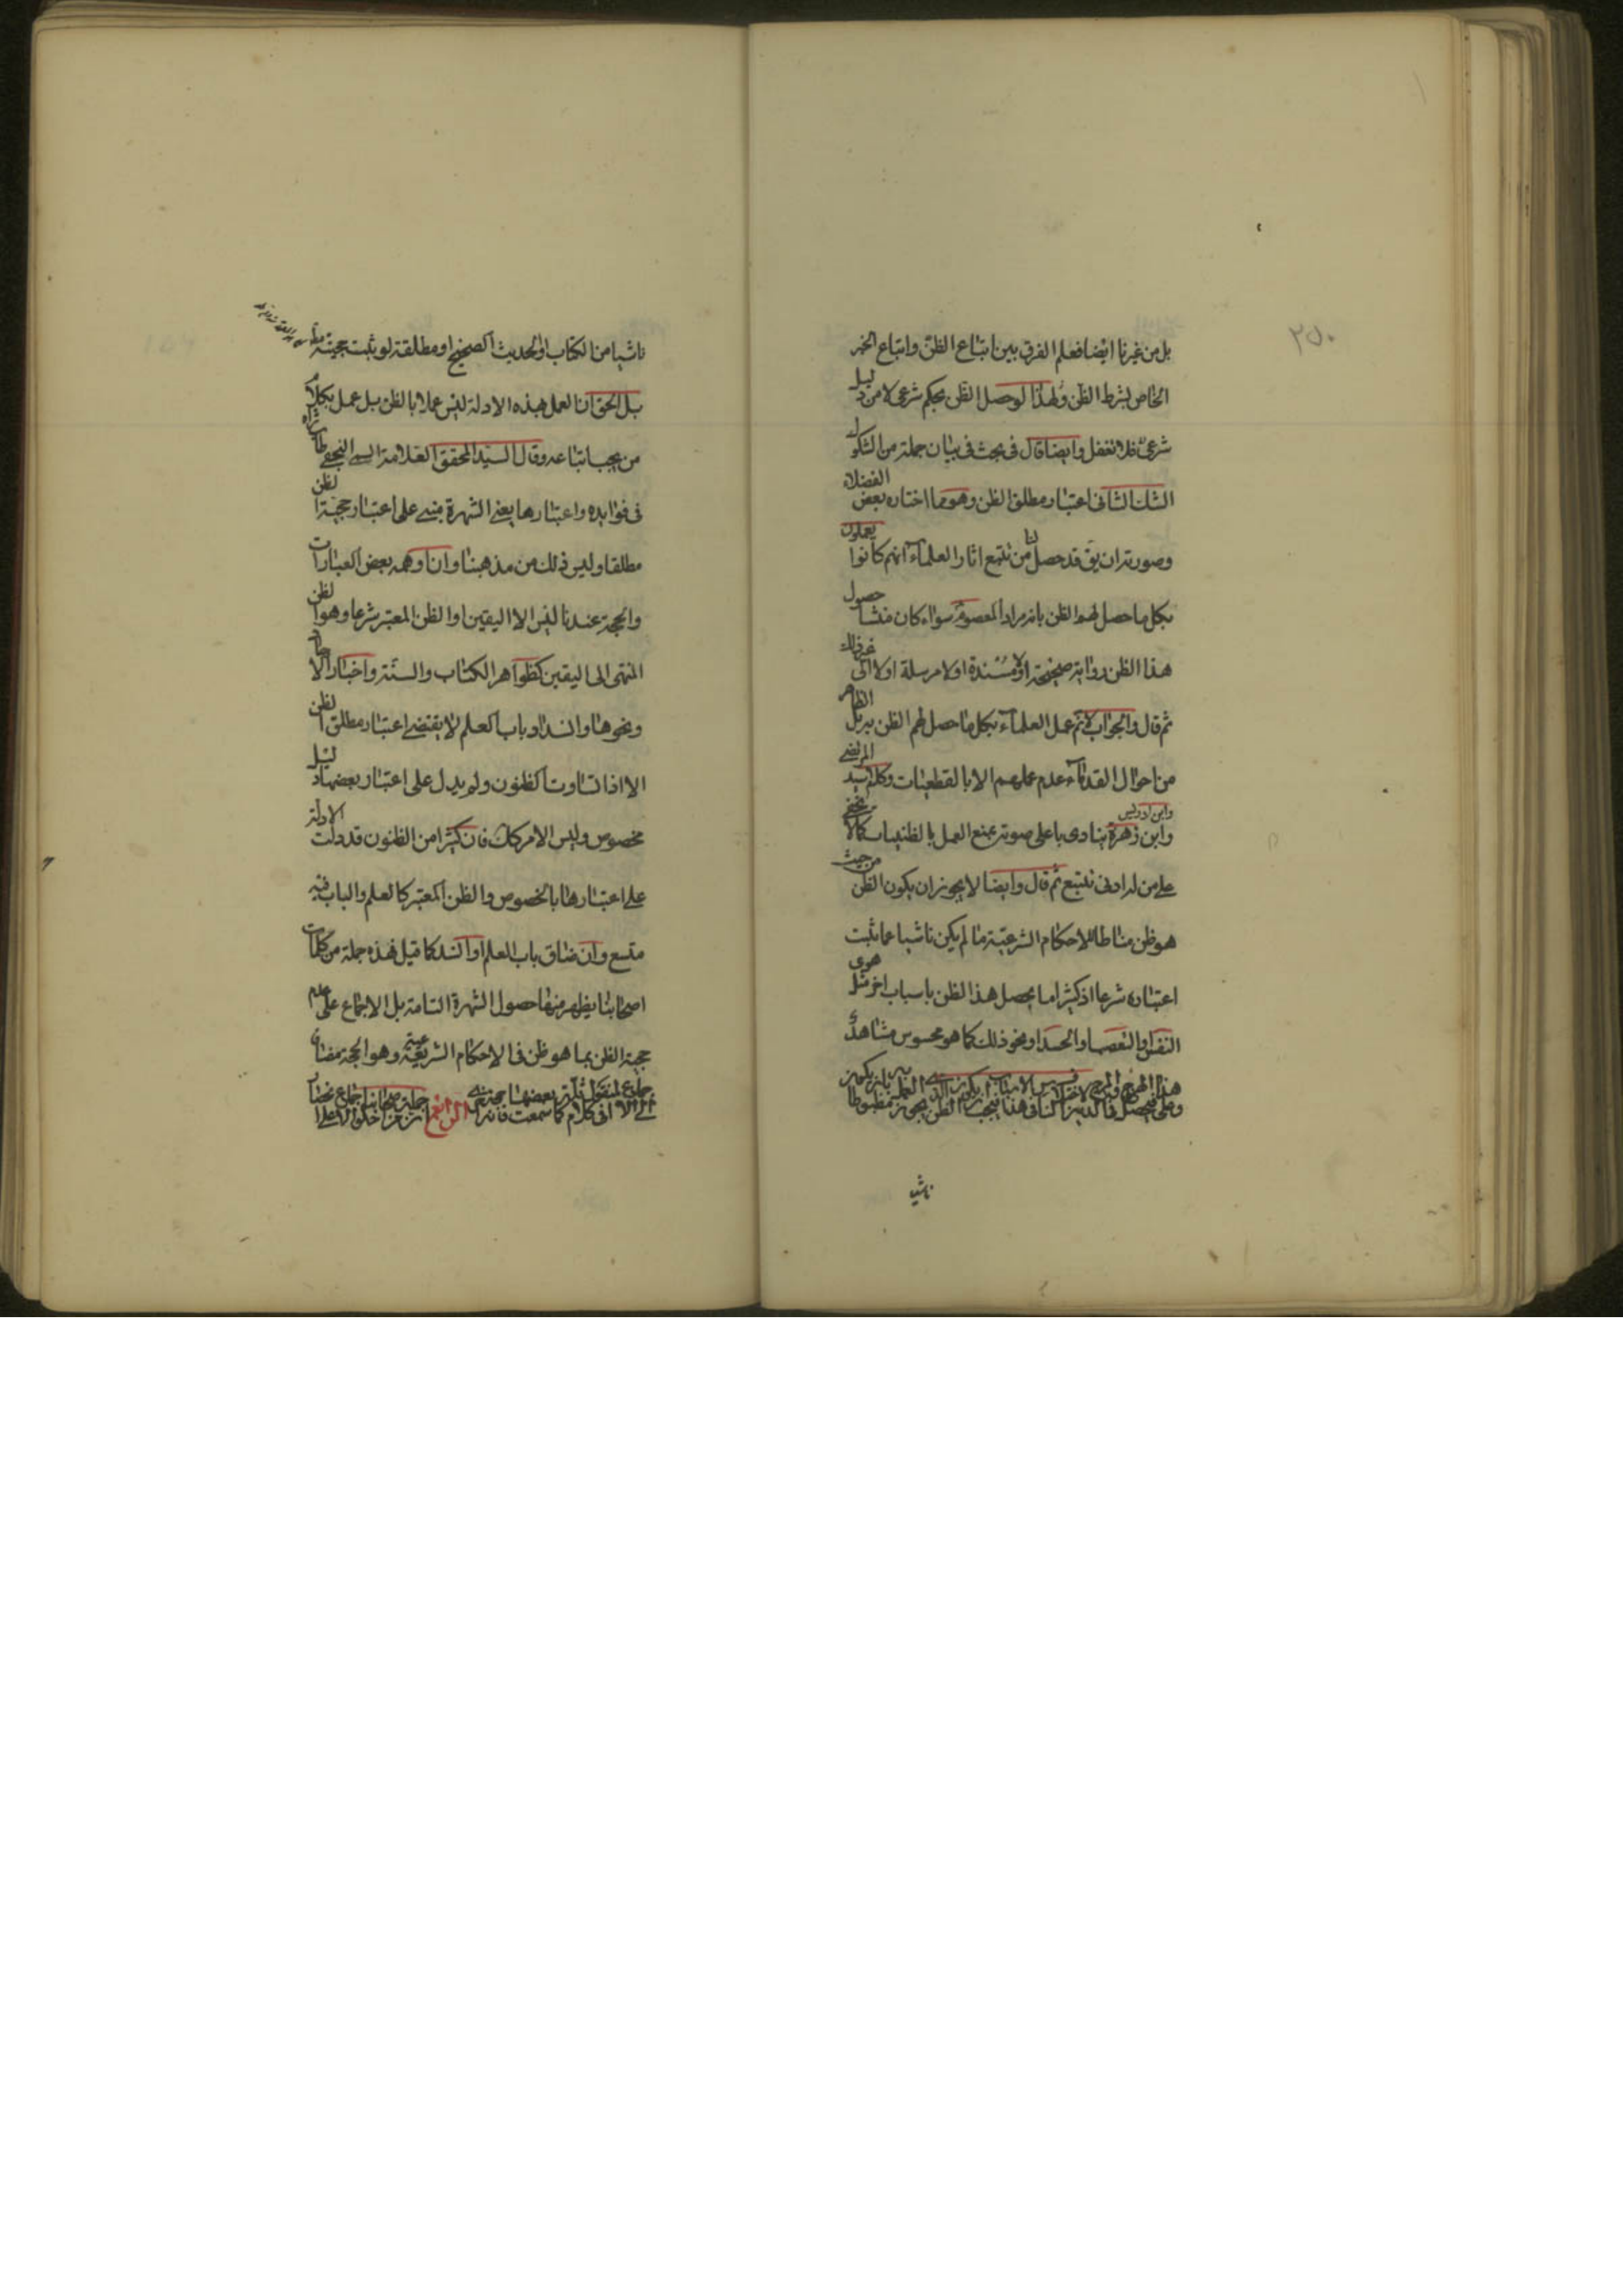 ٢٥٠
بل من غيرنا ايضا فعلم الفرق بين اتباع الظن واتباع الخبر
الخاص بشرط الظن ولهذا لو حصل الظن بحكم شرعي لا من دليل
شرعي فلا تغفل وايضا قال في بحث في بيان جملة من الشكوك
الشك الثاني اعتبار مطلق الظن وهو مما اختاره بعض الفضلاء
وصورته ان يق قد حصل لنا من تتبع اثار العلماء انهم كانوا يعملون
بكل ما حصل لهم الظن بانه مراد المعصوم سواء كان منشا حصول
هذا الظن رواية صحيحة او لا مسندة او لا مرسلة او لا الى غير ذلك
ثم قال والجواب لا ثم عمل العلماء بكل ما حصل لهم الظن به بل الظاهر
من احوال القدماء عدم عملهم الا بالقطعيات وكلام السيد المرتضى
وابن زهرة وابن ادريس ينادى باعلى صوته بمنع العمل بالظنيات كما لا يخفى
على من له ادنى تتبع ثم قال وايضا لا يجوز ان يكون الظن من حيث
هو ظن مناطا للاحكام الشرعية ما لم يكن ناشيا عما يثبت
اعتباره شرعا اذ كثيرا ما يحصل هذا الظن باسباب اخر مثل هوى
النفس او التعصب او الحسد او نحو ذلك كما هو محسوس مشاهد
ناشيا
ناشيا من الكتاب او الحديث الصحيح او مطلقة لو ثبت حجيته
بل الحق ان العمل بهذه الادلة ليس عملا بالظن بل عمل بكلام
من يجب اتباعه وقال السيد المحقق العلامة السمي النجفي طاب ثراه
في فوايده واعتبارها يعني الشهرة مبني على اعتبار حجية الظن
مطلقا وليس ذلك من مذهبنا وان اوهمه بعض العبارات
والحجة عندنا ليس الا اليقين او الظن المعتبر شرعا وهو الظن
المنتهى الى اليقين كظواهر الكتاب والسنة واخبار الاحاد
ونحوها وانسداد باب العلم لا يقتضي اعتبار مطلق الظن
الا اذا تساوت الظنون ولم يدل على اعتبار بعضها دليل
مخصوص وليس الامر كك فان كثيرا من الظنون قد دلت الادلة
على اعتبارها بالخصوص والظن المعتبر كالعلم والباب فيه
متسع وان ضاق باب العلم او انسد كما قيل فهذه جملة من كلمات
اصحابنا يظهر منها حصول الشهرة التامة بل الاجماع على عدم
حجية الظن بما هو ظن في الاحكام الشرعية وهو الحجة مضافا